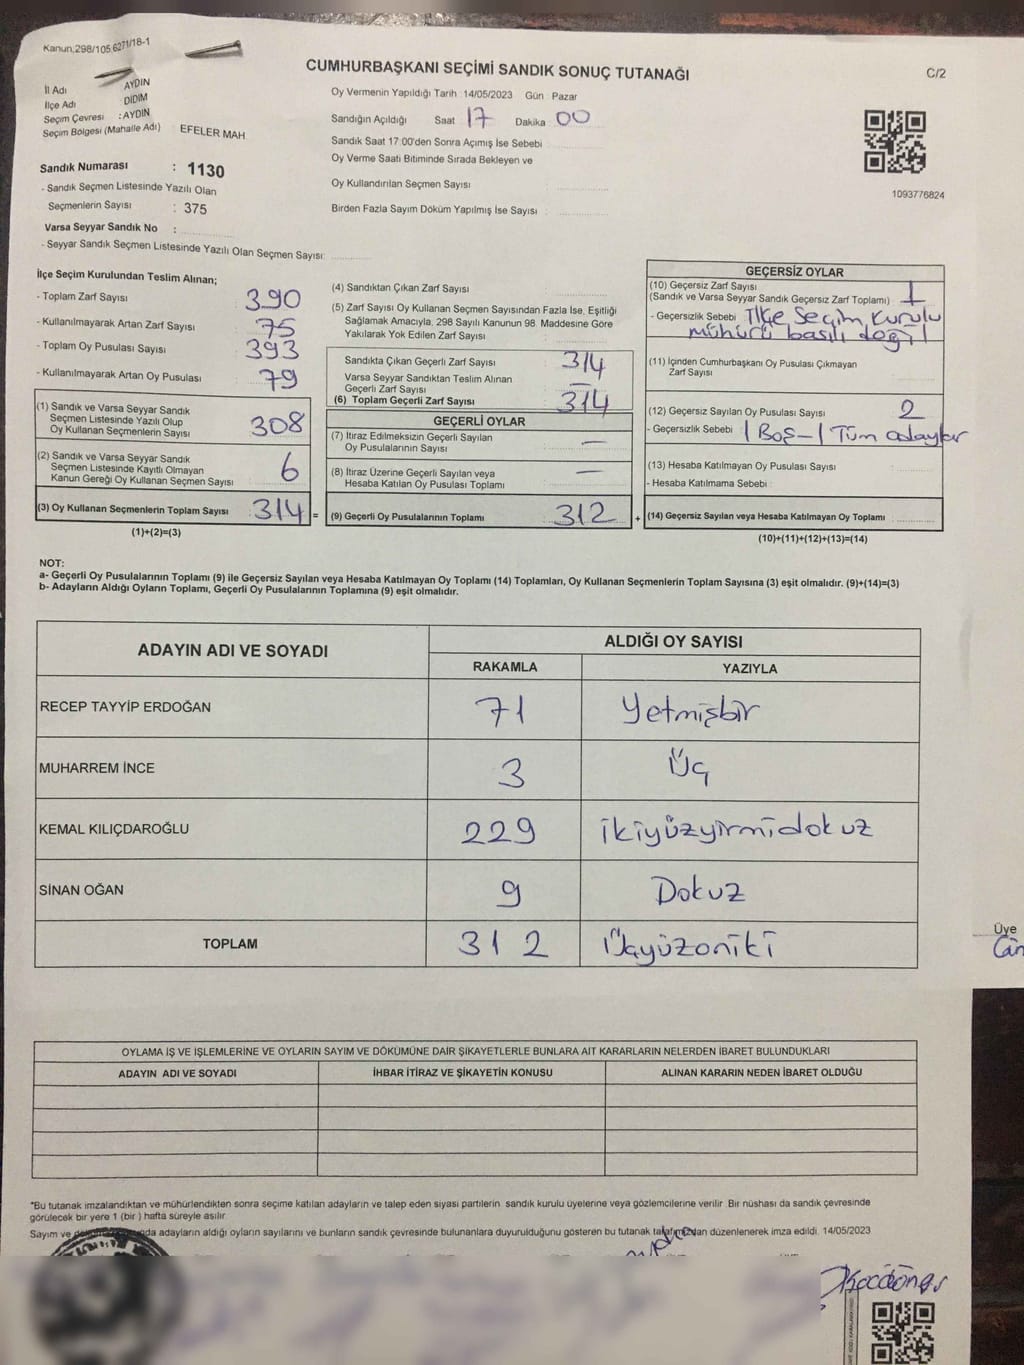 Kanun;298/105 6271/18-1
CUMHURBAŞKANI SEÇİMİ SANDIK SONUÇ TUTANAĞI
C/2
İl Adı AYDIN
İlçe Adı : DİDİM
Seçim Çevresi : AYDIN
Seçim Bölgesi (Mahalle Adı) EFELER MAH.
Oy Vermenin Yapıldığı Tarih : 14/05/2023 Gün : Pazar
Sandığın Açıldığı Saat : 17 Dakika : 00
Sandık Saat 17:00'den Sonra Açımış İse Sebebi
Oy Verme Saati Bitiminde Sırada Bekleyen ve
Oy Kullandırılan Seçmen Sayısı
Birden Fazla Sayım Döküm Yapılmış İse Sayısı
1093776824
Sandık Numarası : 1130
- Sandık Seçmen Listesinde Yazılı Olan
Seçmenlerin Sayısı : 375
Varsa Seyyar Sandık No :
- Seyyar Sandık Seçmen Listesinde Yazılı Olan Seçmen Sayısı:
İlçe Seçim Kurulundan Teslim Alınan;
- Toplam Zarf Sayısı : 390
- Kullanılmayarak Artan Zarf Sayısı : 75
- Toplam Oy Pusulası Sayısı : 393
- Kullanılmayarak Artan Oy Pusulası : 79
(1) Sandık ve Varsa Seyyar Sandık
Seçmen Listesinde Yazılı Olup
Oy Kullanan Seçmenlerin Sayısı : 308
(2) Sandık ve Varsa Seyyar Sandık
Seçmen Listesinde Kayıtlı Olmayan
Kanun Gereği Oy Kullanan Seçmen Sayısı : 6
(3) Oy Kullanan Seçmenlerin Toplam Sayısı : 314 =
(1)+(2)=(3)
(4) Sandıktan Çıkan Zarf Sayısı
(5) Zarf Sayısı Oy Kullanan Seçmen Sayısından Fazla İse, Eşitliği
Sağlamak Amacıyla, 298 Sayılı Kanunun 98. Maddesine Göre
Yakılarak Yok Edilen Zarf Sayısı
Sandıkta Çıkan Geçerli Zarf Sayısı : 314
Varsa Seyyar Sandıktan Teslim Alınan
Geçerli Zarf Sayısı : —
(6) Toplam Geçerli Zarf Sayısı : 314
GEÇERLİ OYLAR
(7) İtiraz Edilmeksizin Geçerli Sayılan
Oy Pusulalarının Sayısı : —
(8) İtiraz Üzerine Geçerli Sayılan veya
Hesaba Katılan Oy Pusulası Toplamı : —
(9) Geçerli Oy Pusulalarının Toplamı : 312 +
GEÇERSİZ OYLAR
(10) Geçersiz Zarf Sayısı
(Sandık ve Varsa Seyyar Sandık Geçersiz Zarf Toplamı) : 1
- Geçersizlik Sebebi : İlçe Seçim Kurulu
mühürü basılı değil
(11) İçinden Cumhurbaşkanı Oy Pusulası Çıkmayan
Zarf Sayısı
(12) Geçersiz Sayılan Oy Pusulası Sayısı : 2
- Geçersizlik Sebebi : 1 Boş - 1 Tüm adaylar
(13) Hesaba Katılmayan Oy Pusulası Sayısı :
- Hesaba Katılmama Sebebi :
(14) Geçersiz Sayılan veya Hesaba Katılmayan Oy Toplamı :
(10)+(11)+(12)+(13)=(14)
NOT:
a- Geçerli Oy Pusulalarının Toplamı (9) ile Geçersiz Sayılan veya Hesaba Katılmayan Oy Toplamı (14) Toplamları, Oy Kullanan Seçmenlerin Toplam Sayısına (3) eşit olmalıdır. (9)+(14)=(3)
b- Adayların Aldığı Oyların Toplamı, Geçerli Oy Pusulalarının Toplamına (9) eşit olmalıdır.
ADAYIN ADI VE SOYADI
ALDIĞI OY SAYISI
RAKAMLA YAZIYLA
RECEP TAYYİP ERDOĞAN 71 Yetmişbir
MUHARREM İNCE 3 Üç
KEMAL KILIÇDAROĞLU 229 ikiyüzyirmidokuz
SİNAN OĞAN 9 Dokuz
TOPLAM 312 Üçyüzoniki
Üye
OYLAMA İŞ VE İŞLEMLERİNE VE OYLARIN SAYIM VE DÖKÜMÜNE DAİR ŞİKAYETLERLE BUNLARA AİT KARARLARIN NELERDEN İBARET BULUNDUKLARI
ADAYIN ADI VE SOYADI İHBAR İTİRAZ VE ŞİKAYETİN KONUSU ALINAN KARARIN NEDEN İBARET OLDUĞU
*Bu tutanak imzalandıktan ve mühürlendikten sonra seçime katılan adayların ve talep eden siyasi partilerin sandık kurulu üyelerine veya gözlemcilerine verilir. Bir nüshası da sandık çevresinde
görülecek bir yere 1 (bir) hafta süreyle asılır.
Sayım ve adayların aldığı oyların sayılarını ve bunların sandık çevresinde bulunanlara duyurulduğunu gösteren bu tutanak tarafımızdan düzenlenerek imza edildi. 14/05/2023